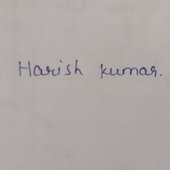 Harish kumar.